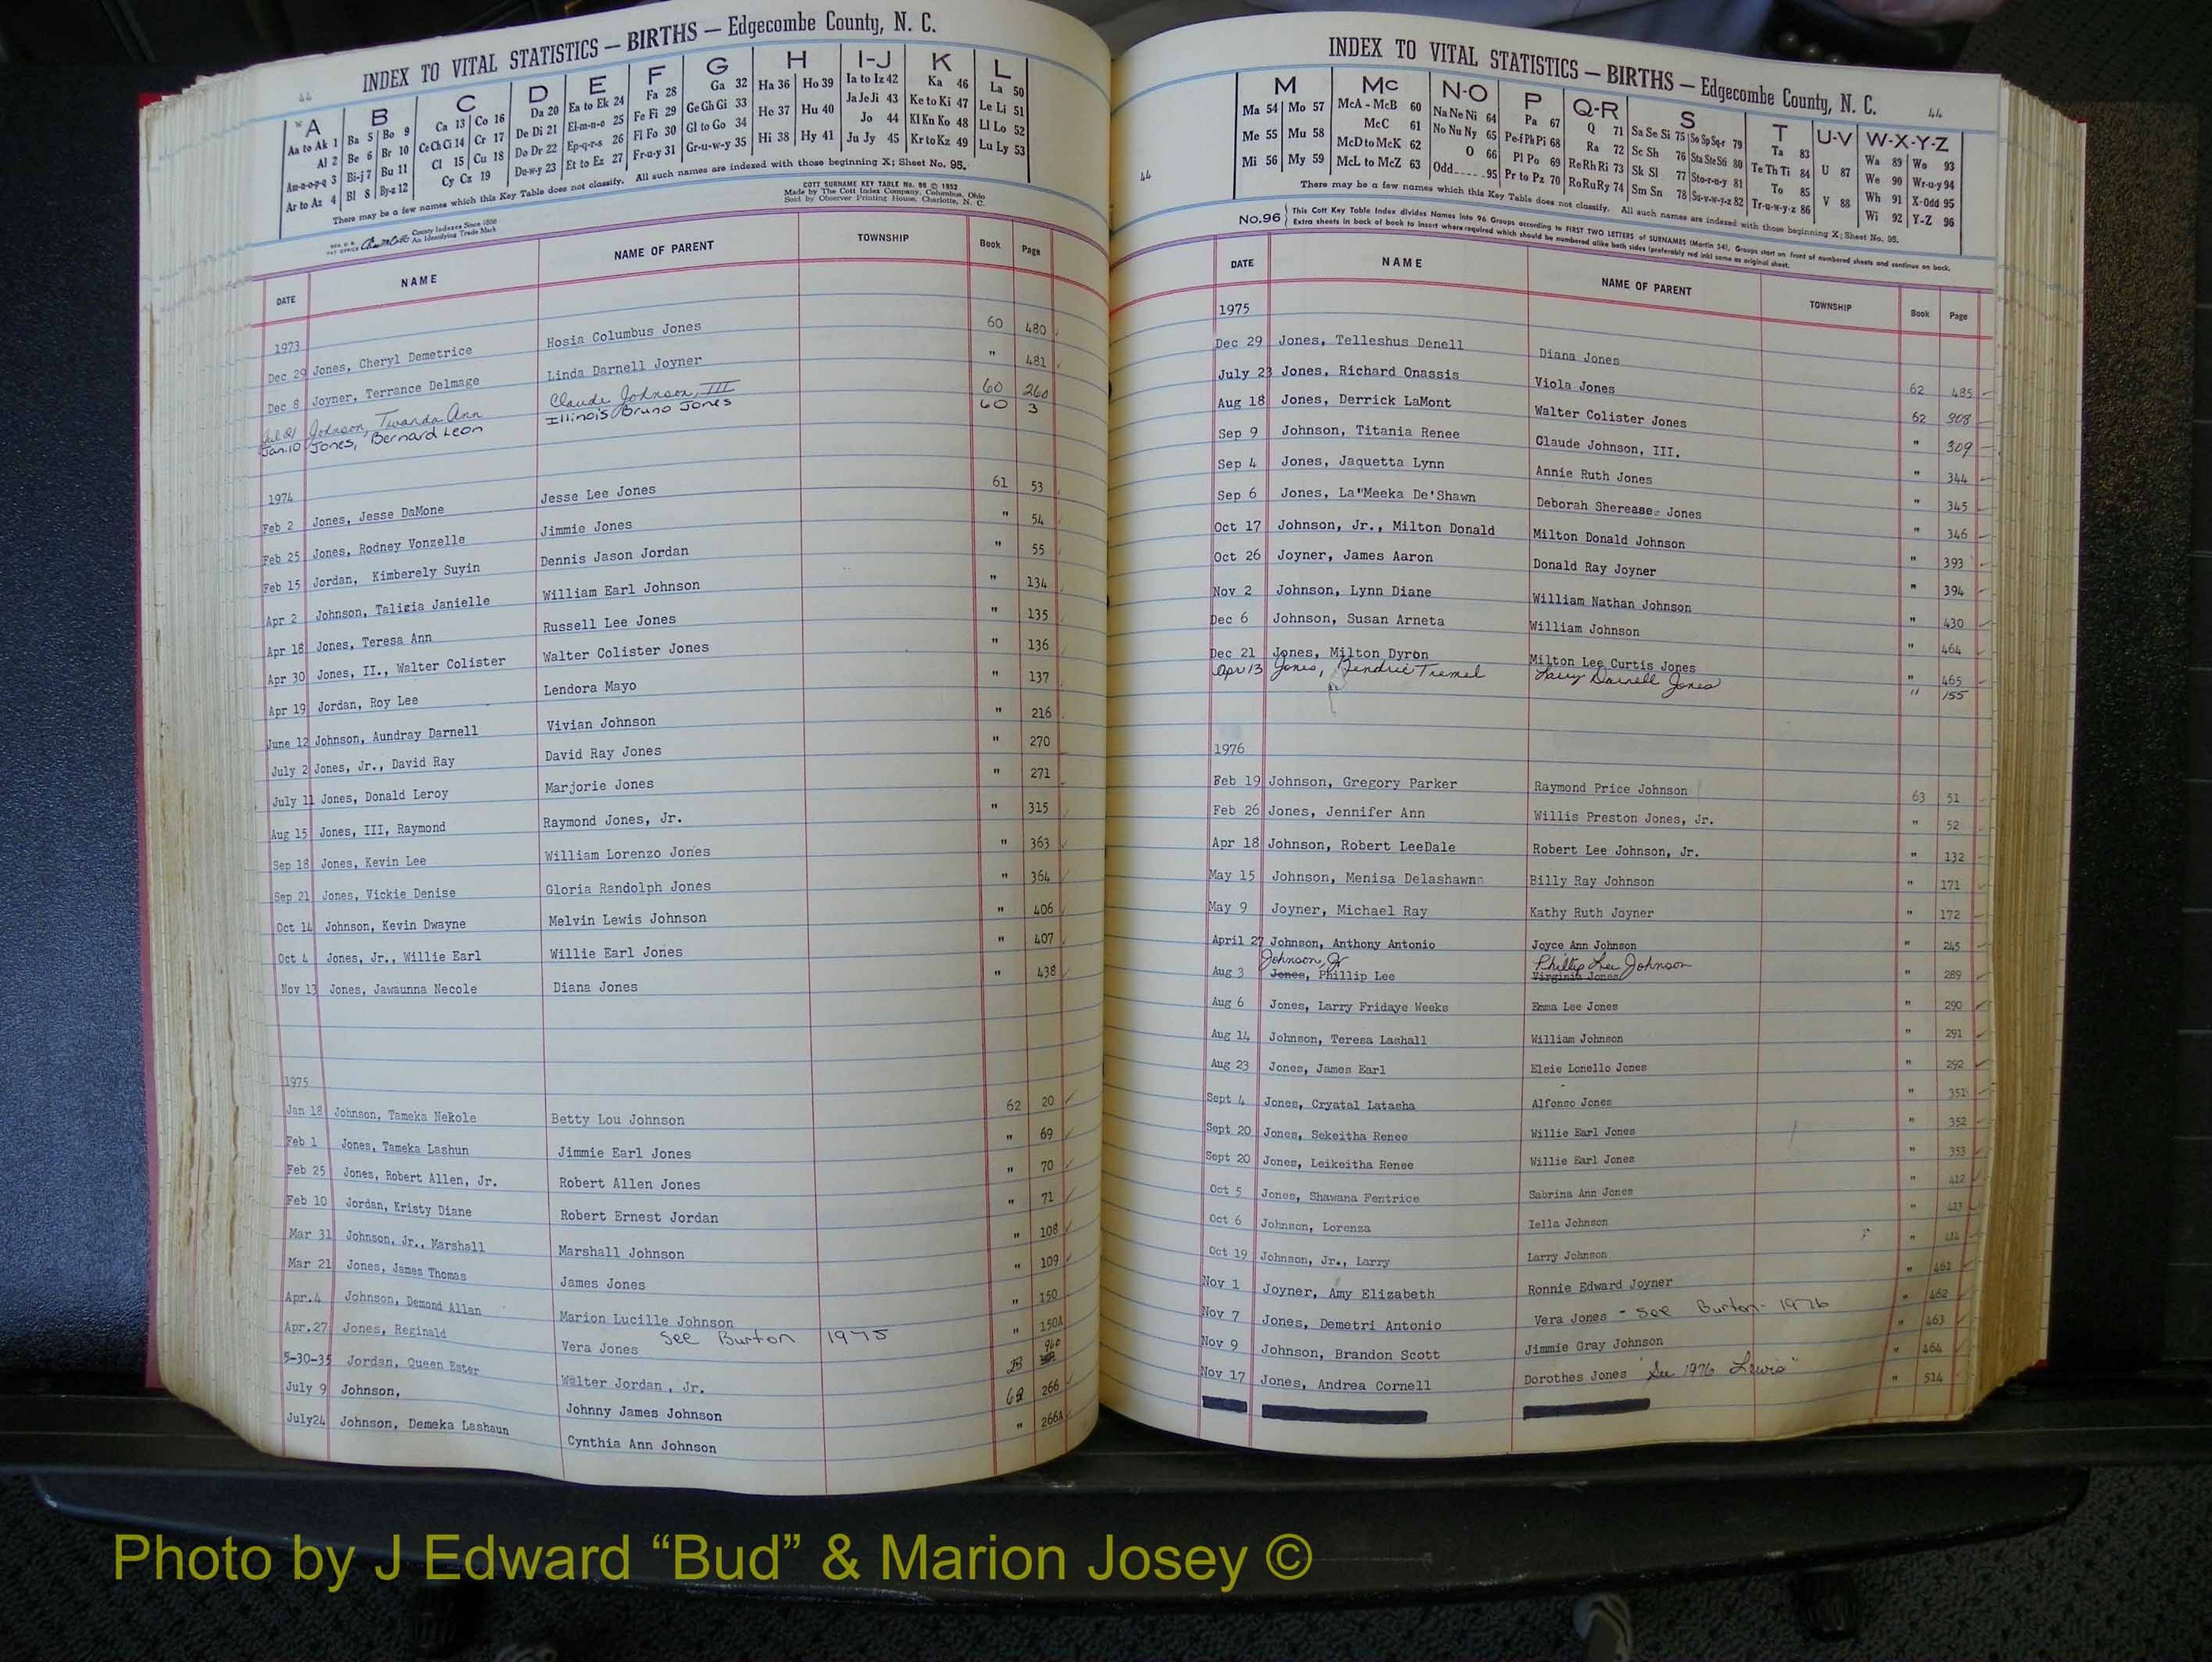 44
INDEX TO VITAL STATISTICS — BIRTHS — Edgecombe County, N. C.
A B C D E F G H I-J K L
Aa to Ak 1 Ba 5 Bo 9 Ca 13 Co 16 Da 20 Ea to Ek 24 Fa 28 Ga 32 Ha 36 Ho 39 Ia to Iz 42 Ka 46 La 50
Al 2 Be 6 Br 10 Ce Ch Ci 14 Cr 17 De Di 21 El-m-n-o 25 Fe Fi 29 Ge Gh Gi 33 He 37 Hu 40 Ja Je Ji 43 Ke to Ki 47 Le Li 51
Am-n-o-p-q 3 Bi-j 7 Bu 11 Cl 15 Cu 18 Do Dr 22 Ep-q-r-s 26 Fl Fo 30 Gl to Go 34 Hi 38 Hy 41 Jo 44 Kl Kn Ko 48 Ll Lo 52
Ar to Az 4 Bl 8 By-z 12 Cy Cz 19 Du-w-y 23 Et to Ez 27 Fr-u-y 31 Gr-u-w-y 35 Ju Jy 45 Kr to Kz 49 Lu Ly 53
There may be a few names which this Key Table does not classify. All such names are indexed with those beginning X; Sheet No. 95.
COTT SURNAME KEY TABLE No. 96 © 1952
Made by The Cott Index Company, Columbus, Ohio
Sold by Observer Printing House, Charlotte, N. C.
County Indexes Since 1888
An Identifying Trade Mark
DATE NAME NAME OF PARENT TOWNSHIP Book Page
1973
Dec 29 Jones, Cheryl Demetrice Hosia Columbus Jones 60 480
Dec 8 Joyner, Terrance Delmage Linda Darnell Joyner " 481
Jul 21 Johnson, Twanda Ann Claude Johnson, III 60 260
Jan. 10 Jones, Bernard Leon Illinois Bruno Jones 60 3
1974
Feb 2 Jones, Jesse DaMone Jesse Lee Jones 61 53
Feb 25 Jones, Rodney Vonzelle Jimmie Jones " 54
Feb 15 Jordan, Kimberely Suyin Dennis Jason Jordan " 55
Apr 2 Johnson, Taligia Janielle William Earl Johnson " 134
Apr 18 Jones, Teresa Ann Russell Lee Jones " 135
Apr 30 Jones, II., Walter Colister Walter Colister Jones " 136
Apr 19 Jordan, Roy Lee Lendora Mayo " 137
June 12 Johnson, Aundray Darnell Vivian Johnson " 216
July 2 Jones, Jr., David Ray David Ray Jones " 270
July 11 Jones, Donald Leroy Marjorie Jones " 271
Aug 15 Jones, III, Raymond Raymond Jones, Jr. " 315
Sep 18 Jones, Kevin Lee William Lorenzo Jones " 363
Sep 21 Jones, Vickie Denise Gloria Randolph Jones " 364
Oct 14 Johnson, Kevin Dwayne Melvin Lewis Johnson " 406
Oct 4 Jones, Jr., Willie Earl Willie Earl Jones " 407
Nov 13 Jones, Jawaunna Necole Diana Jones " 438
1975
Jan 18 Johnson, Tameka Nekole Betty Lou Johnson 62 20
Feb 1 Jones, Tameka Lashun Jimmie Earl Jones " 69
Feb 25 Jones, Robert Allen, Jr. Robert Allen Jones " 70
Feb 10 Jordan, Kristy Diane Robert Ernest Jordan " 71
Mar 31 Johnson, Jr., Marshall Marshall Johnson " 108
Mar 21 Jones, James Thomas James Jones " 109
Apr. 4 Johnson, Demond Allan Marion Lucille Johnson " 150
Apr. 27 Jones, Reginald Vera Jones See Burton 1975 " 150A
5-30-35 Jordan, Queen Ester Walter Jordan, Jr. 960
July 9 Johnson, Johnny James Johnson 62 266
July24 Johnson, Demeka Lashaun Cynthia Ann Johnson " 266A
INDEX TO VITAL STATISTICS — BIRTHS — Edgecombe County, N. C.
44
44
M Mc N-O P Q-R S T U-V W-X-Y-Z
Ma 54 Mo 57 McA - McB 60 Na Ne Ni 64 Pa 67 Q 71 Sa Se Si 75 So Sp Sq-r 79 Ta 83 U 87 Wa 89 Wo 93
Me 55 Mu 58 McC 61 No Nu Ny 65 Pe-f Ph Pi 68 Ra 72 Sc Sh 76 Sta Ste Sti 80 Te Th Ti 84 We 90 Wr-u-y 94
Mi 56 My 59 McD to McK 62 O 66 Pl Po 69 Re Rh Ri 73 Sk Sl 77 Sto-r-u-y 81 To 85 V 88 Wh 91 X-Odd 95
McL to McZ 63 Odd 95 Pr to Pz 70 Ro Ru Ry 74 Sm Sn 78 Su-v-w-y-z 82 Tr-u-w-y-z 86 Wi 92 Y-Z 96
There may be a few names which this Key Table does not classify. All such names are indexed with those beginning X; Sheet No. 95.
No. 96 This Cott Key Table Index divides Names into 96 Groups according to FIRST TWO LETTERS of SURNAMES (Martin 54). Groups start on front of numbered sheets and continue on back.
Extra sheets in back of book to insert where required which should be numbered alike both sides (preferably red ink) same as original sheet.
DATE NAME NAME OF PARENT TOWNSHIP Book Page
1975
Dec 29 Jones, Telleshus Denell Diana Jones 62 485
July 23 Jones, Richard Onassis Viola Jones 62 308
Aug 18 Jones, Derrick LaMont Walter Colister Jones " 309
Sep 9 Johnson, Titania Renee Claude Johnson, III. " 344
Sep 4 Jones, Jaquetta Lynn Annie Ruth Jones " 345
Sep 6 Jones, La"Meeka De'Shawn Deborah Sherease Jones " 346
Oct 17 Johnson, Jr., Milton Donald Milton Donald Johnson " 393
Oct 26 Joyner, James Aaron Donald Ray Joyner " 394
Nov 2 Johnson, Lynn Diane William Nathan Johnson " 430
Dec 6 Johnson, Susan Arneta William Johnson " 464
Dec 21 Jones, Milton Dyron Milton Lee Curtis Jones " 465
Apr 13 Jones, Kendric Tremel Larry Darnell Jones " 155
1976
Feb 19 Johnson, Gregory Parker Raymond Price Johnson 63 51
Feb 26 Jones, Jennifer Ann Willis Preston Jones, Jr. " 52
Apr 18 Johnson, Robert LeeDale Robert Lee Johnson, Jr. " 132
May 15 Johnson, Menisa Delashawn Billy Ray Johnson " 171
May 9 Joyner, Michael Ray Kathy Ruth Joyner " 172
April 27 Johnson, Anthony Antonio Joyce Ann Johnson " 245
Johnson, Jr Phillip Lee Johnson
Aug 3 Jones, Phillip Lee Virginia Jones " 289
Aug 6 Jones, Larry Fridaye Weeks Emma Lee Jones " 290
Aug 14 Johnson, Teresa Lashall William Johnson " 291
Aug 23 Jones, James Earl Elsie Lonello Jones " 292
Sept 4 Jones, Cryatal Latasha Alfonso Jones " 351
Sept 20 Jones, Sekeitha Renee Willie Earl Jones " 352
Sept 20 Jones, Leikeitha Renee Willie Earl Jones " 353
Oct 5 Jones, Shawana Fentrice Sabrina Ann Jones " 412
Oct 6 Johnson, Lorenza Iella Johnson " 413
Oct 19 Johnson, Jr., Larry Larry Johnson " 414
Nov 1 Joyner, Amy Elizabeth Ronnie Edward Joyner " 461
Nov 7 Jones, Demetri Antonio Vera Jones - See Burton - 1976 " 462
Nov 9 Johnson, Brandon Scott Jimmie Gray Johnson " 463
Nov 17 Jones, Andrea Cornell Dorothes Jones "See 1976 Lewis" " 464
" 514
Photo by J Edward “Bud” & Marion Josey ©